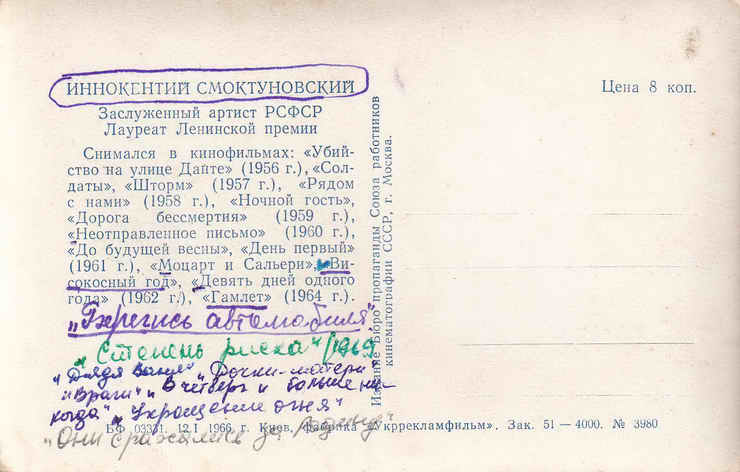 ИННОКЕНТИЙ СМОКТУНОВСКИЙ
Заслуженный артист РСФСР
Лауреат Ленинской премии
Снимался в кинофильмах: «Убий-
ство на улице Данте» (1956 г.), «Сол-
даты», «Шторм» (1957 г.), «Рядом
с нами» (1958 г.), «Ночной гость»,
«Дорога бессмертия» (1959 г.),
«Неотправленное письмо» (1960 г.),
«До будущей весны», «День первый»
(1961 г.), «Моцарт и Сальери», «Ви-
сокосный год», «Девять дней одного
года» (1962 г.), «Гамлет» (1964 г.).
„Берегись автомобиля"
„Степень риска" 1969
„Дядя Ваня" „Дочки-матери"
„Враги" „В четверг и больше ни-
когда" „Укрощение огня"
„Они сражались за Родину"
БФ 03331. 12.I 1966 г. Киев, фабрика «Укррекламфильм». Зак. 51—4000. № 3980
Издание Бюро пропаганды Союза работников
кинематографии СССР, г. Москва.
Цена 8 коп.